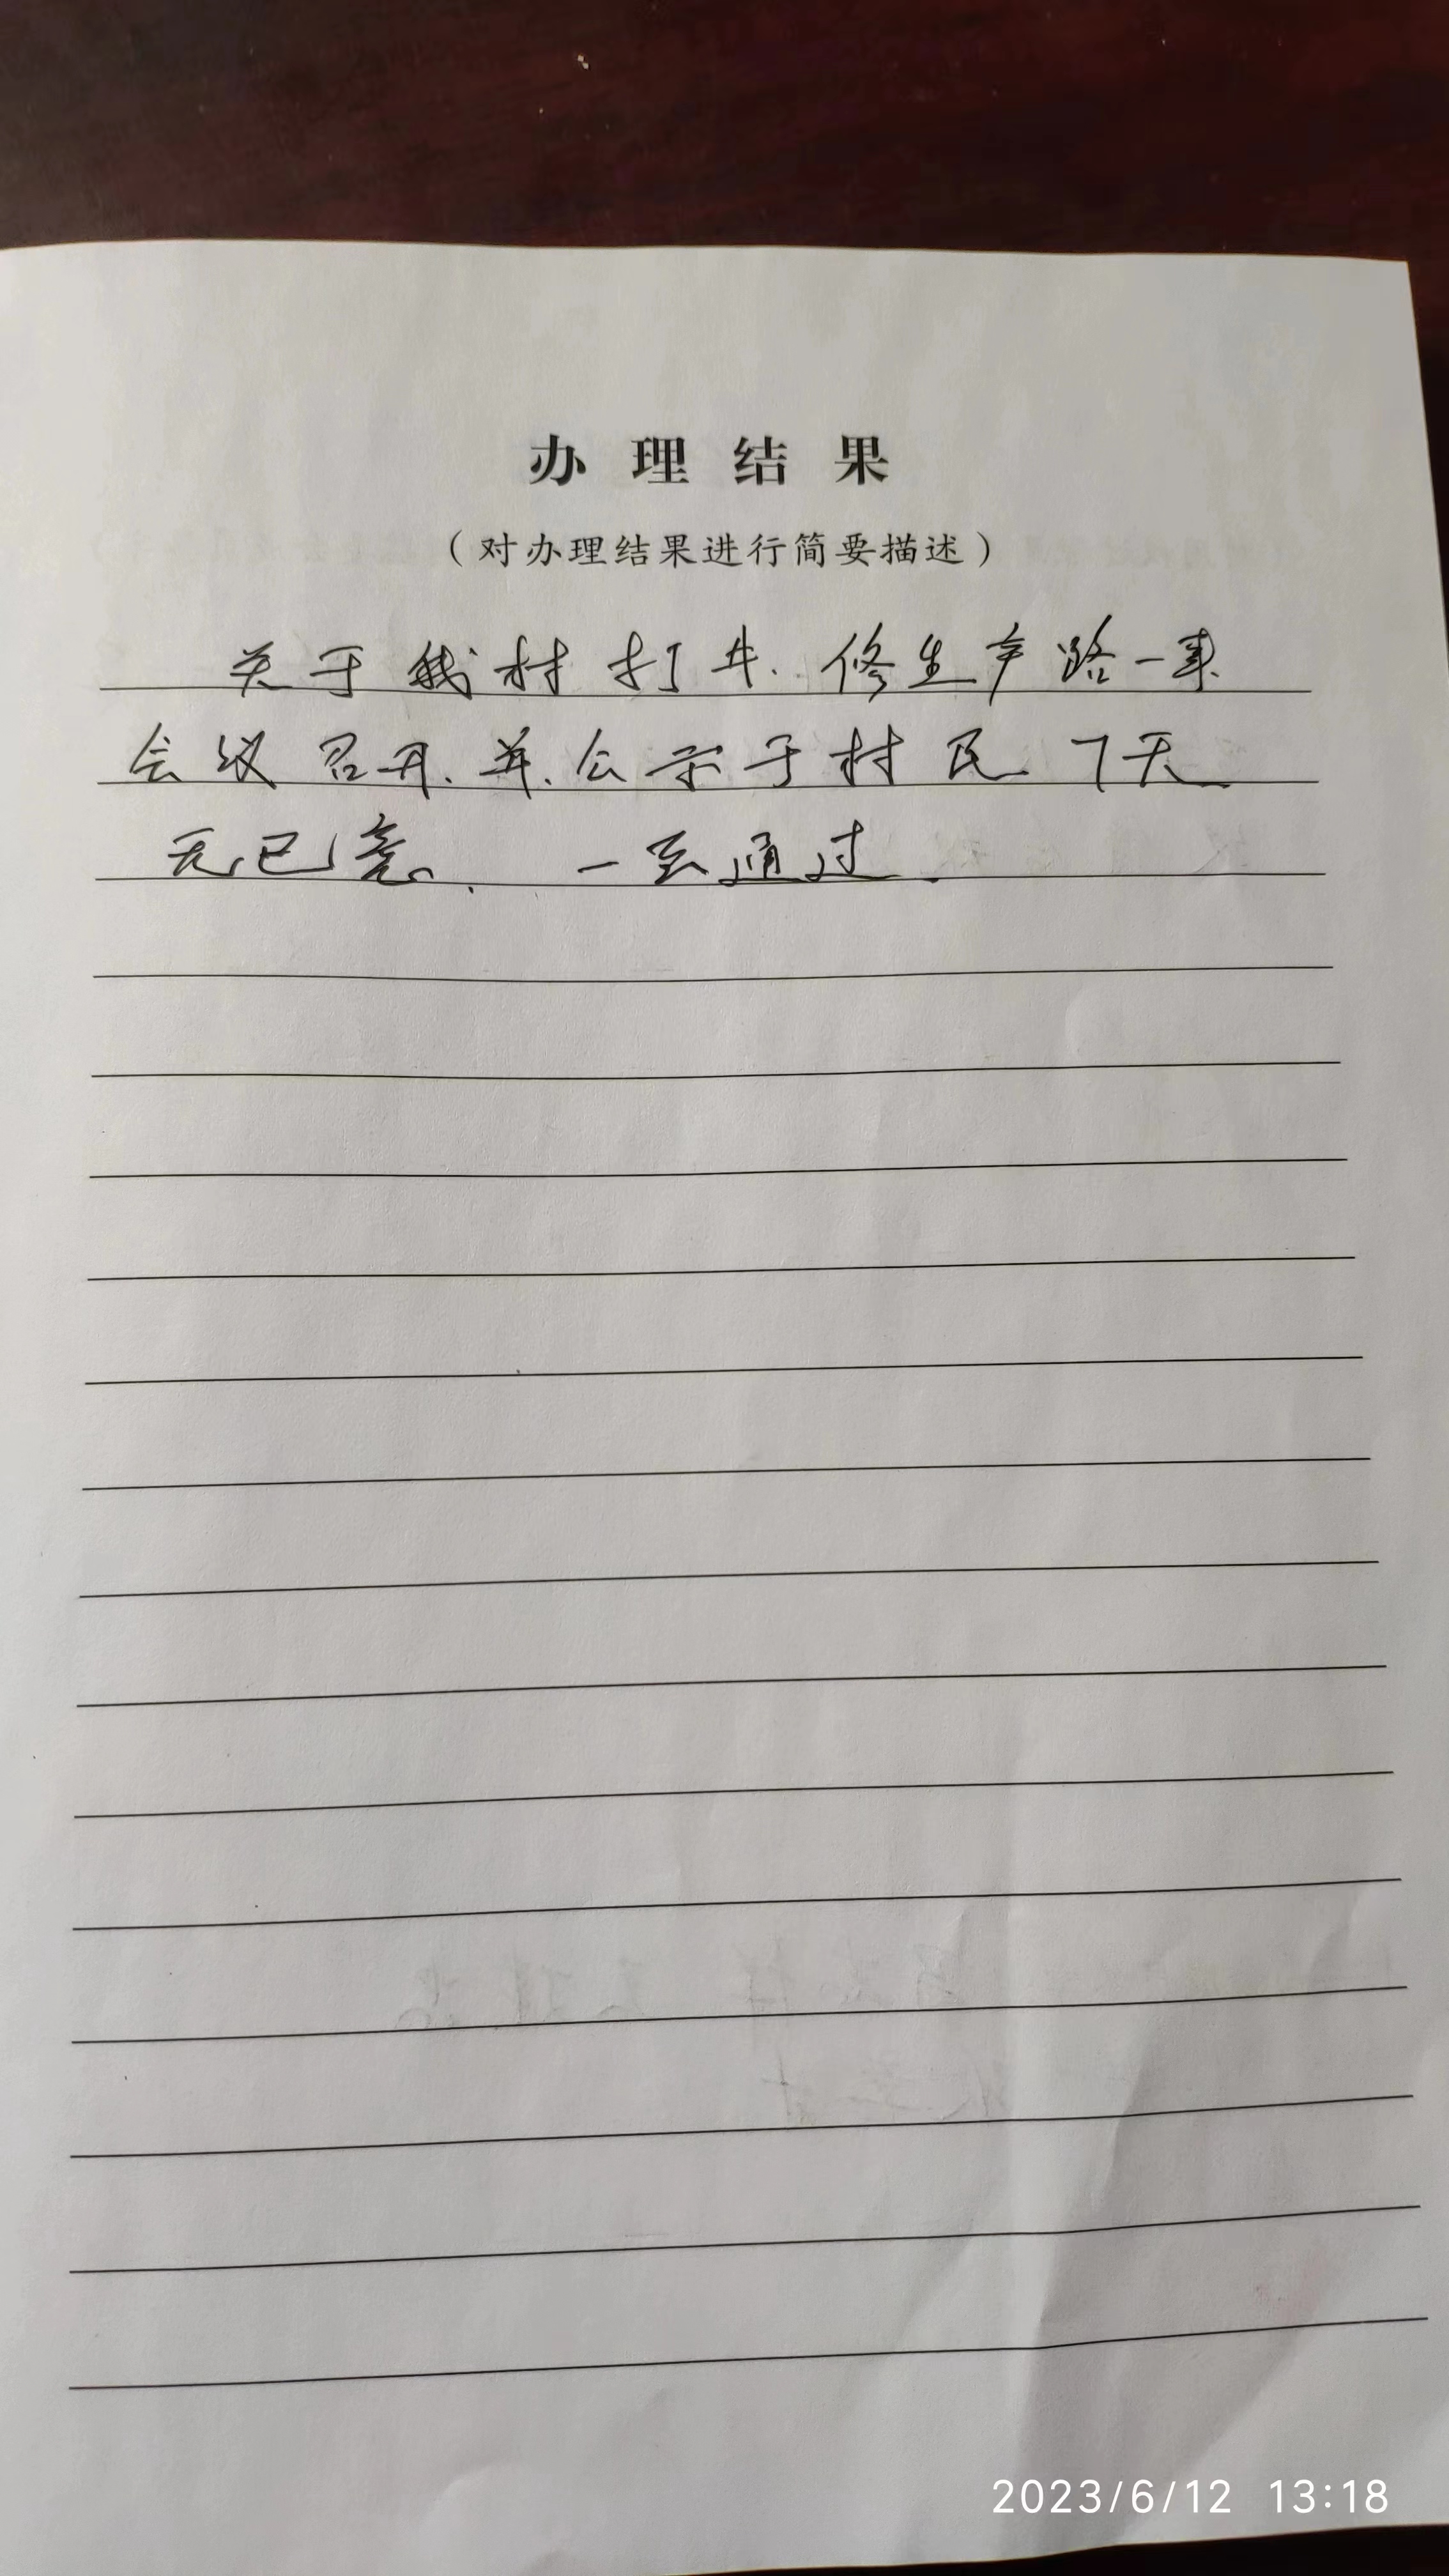 办理结果
（对办理结果进行简要描述）
关于我村打井.修生产路一事
会议召开.并.公示于村民.7天
无已意. 一至通过.
2023/6/12 13:18